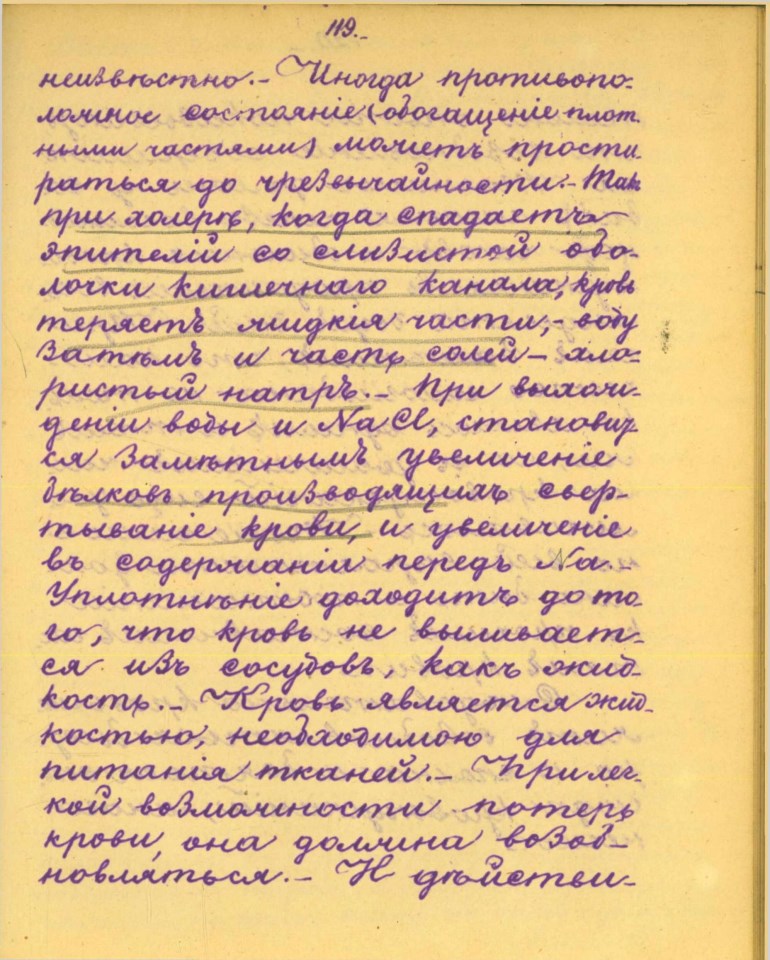 119.-
неизвѣстно.- Иногда противопо-
ложное состояніе (обогащеніе плот-
ными частями) можетъ прости-
раться до чрезвычайности.- Такъ
при холерѣ, когда спадаетъ
эпителій со слизистой обо-
лочки кишечнаго канала, кровь
теряетъ жидкія части,- воду
затѣмъ и часть солей - хло-
ристый натръ.- При выхож-
деніи воды и NaCl, становит-
ся замѣтнымъ увеличеніе
бѣлковъ производящихъ свер-
тываніе крови, и увеличеніе
въ содержаніи передъ Na.-
Уплотнѣніе доходитъ до то-
го, что кровь не выливает-
ся изъ сосудовъ, какъ жид-
кость.- Кровь является жид-
костью, необходимою для
питанія тканей.- При лег-
кой возможности потерь
крови, она должна возоб-
новляться.- И дѣйстви-